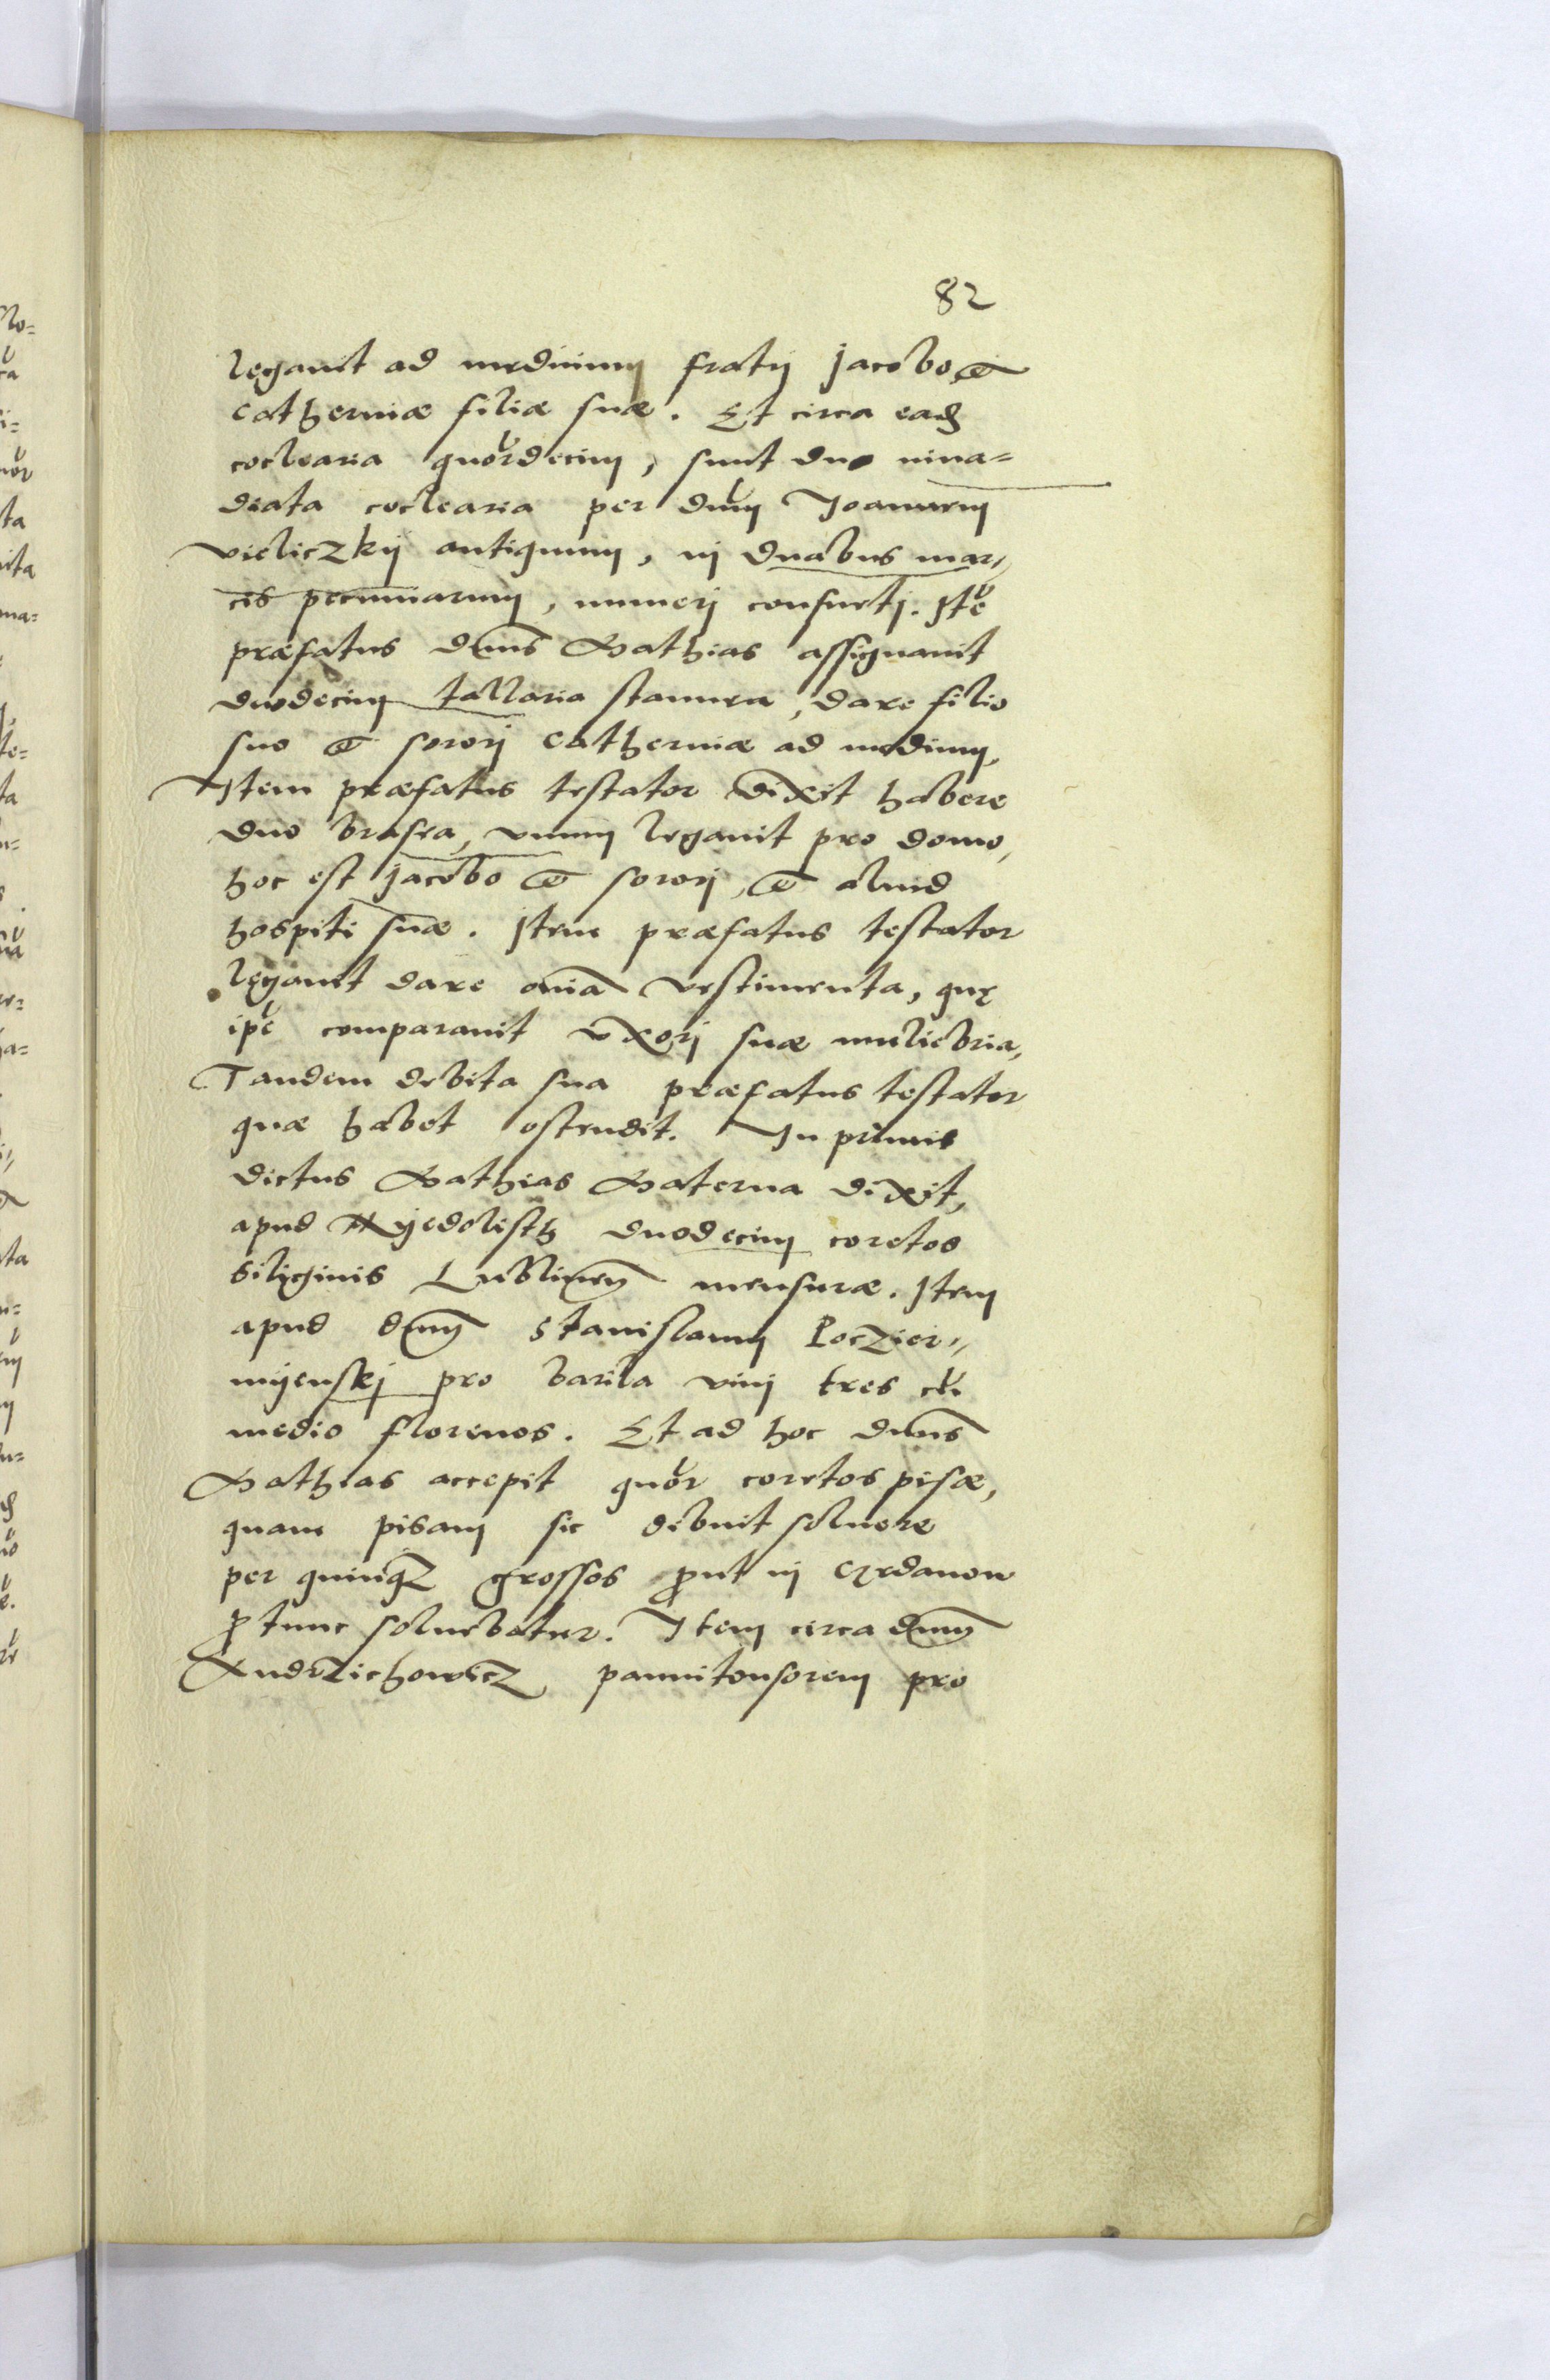 82
legauit ad medium fratrj Jacobo et
Catherinæ filiæ suæ. Et circa eadē
coclearia quordecim, sunt duo inua=
diata coclearia per dnm Joannem
Vieliczkij antiquum, in duabus mar,,
cis pecuniarum, numerj consuetj. Itē
præfatus dnus Mathias assignauit
duodecim tallaria stannea, dare filio
suo et sororj Catherinæ ad medium,
Item præfatus testator dixit habere
duo brasea, vnum legauit pro domo,
hoc est Jacobo et sororj, et aliud
hospiti suæ. Item præfatus testator
legauit dare oniā vestimenta, quę
ipē comparauit vxorj suæ muliebria,
Tandem debita sua præfatus testator
quæ habet ostendit. In primis
dictus Mathias Materna dixit,
apud Nyedolisth duodecim coretos
siliginis Lublinen mensuræ. Item
apud dnum Stanislaum Poczier,,
nijenskj pro barila vinj tres cū
medio florenos. Et ad hoc dnus
Mathias accepit quor coretos pisæ,
quam pisam sic debuit soluere
per quinqz grossos put in
p tunc soluebatur. Item circa dnum
Andrzichowicz pannitonsorem pro